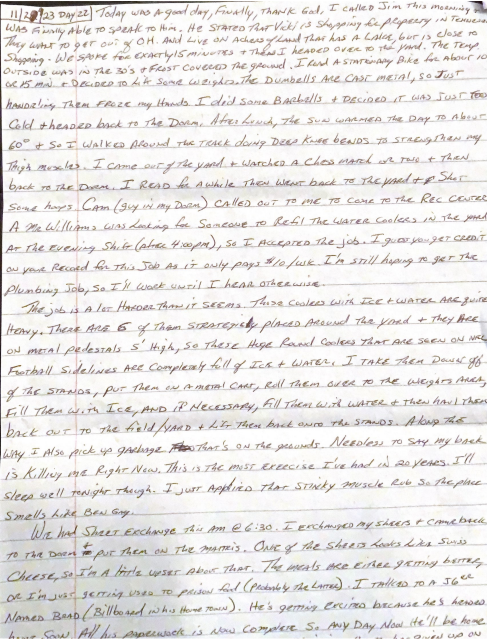 11/29/23 DAY 22 Today was a good day, Finally, Thank God, I called Jim this morning
Was Finally Able to speak to Him. He Stated that Vicki is shopping for property in Tennessee
They want to get out of OH. And Live on Acres of Land that has a Lake, but is close to
Shopping. We spoke for exactly 15 minutes + then I headed over to the yard. The Temp.
Outside was in the 30's + Frost covered the ground. I rode a Stationary Bike for about 10
or 15 min. + Decided to Lift some Weights. The Dumbells are cast metal, so Just
handeling them Froze my Hands. I did some Barbells + Decided it was Just too
Cold + headed back to the Dorm. After Lunch, The Sun warmed the Day to about
60° + so I walked Around the track doing Deep Knee bends to strengthen my
thigh muscles. I came out of the yard + watched a Chess match or two + then
back to the Dorm. I Read for a while then went back to the yard + Shot
some hoops. Cam (guy in my Dorm) called out to me to come to the Rec Center
A Mr Williams was Looking for Someone to Refil the Water Coolers in the yard
At the Evening Shift (after 4:00pm), so I Accepted the job. I guess you get credit
on your Record for this Job as it only pays $10/wk. I'm still hoping to get the
Plumbing Job, so I'll work until I hear otherwise.
The job is a Lot Harder than it seems. Those Coolers with Ice + Water are quite
Heavy. There are 6 of them strategicly placed Around the yard + they are
on metal pedestals 5' High, so These Huge Round Coolers that are seen on NFL
Football Sidelines are Completely full of Ice + Water. I take them Down off
of the Stands, put them on a metal Cart, Roll them over to the Weights Area,
Fill them with Ice, and if Necessary, fill them with water + then haul them
back out to the field/yard + Lift them back onto the stands. Along the
way I Also pick up garbage that's on the grounds. Needless to say my back
is Killing me Right Now. This is the most exercise I've had in 20 years. I'll
Sleep well tonight though. I just Applied that Stinky muscle Rub so the place
Smells Like Ben Gay.
We had Sheet Exchange this Am @ 6:30. I exchanged my sheets + came back
to the Dorm + put them on the mattris. One of the sheets Looks Like Swiss
Cheese, so I'm a little upset about that. The meals are either getting better,
or I'm just getting used to prison food (Probably the Latter). I talked to a
Named Brad (Billboard in his Home Town). He's getting excited because he's headed
home soon. All his paperwork is Now Complete so Any Day Now He'll be home
given up on